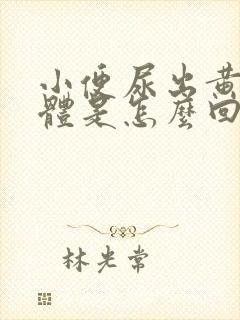 小便尿出黃
體是怎麼回
林光常